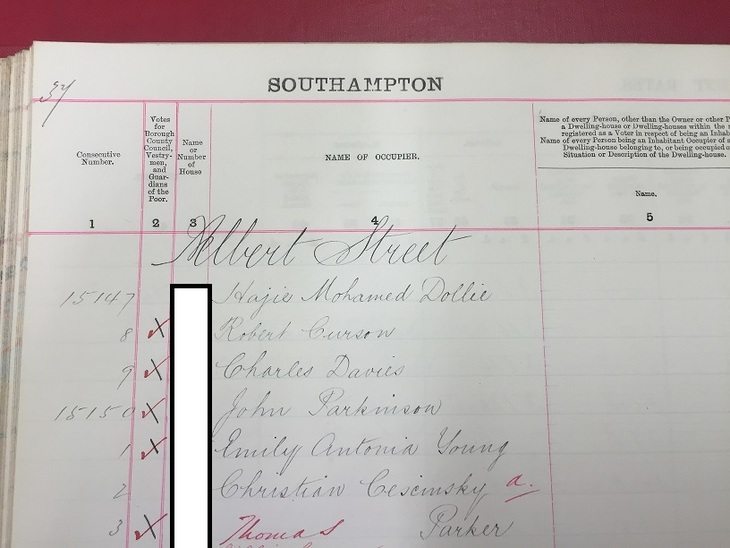 37
SOUTHAMPTON
Consecutive Number.
Votes for Borough County Council, Vestrymen, and Guardians of the Poor.
Name or Number of House
NAME OF OCCUPIER.
Name of every Person, other than the Owner or other P
a Dwelling-house or Dwelling-houses within the
registered as a Voter in respect of being an Inhab
Name of every Person being an Inhabitant Occupier of
Dwelling-house belonging to, or being occupied
Situation or Description of the Dwelling-house.
Name.
1 2 3 4 5
Albert Street
15147 Hajie Mohamed Dollie
8 X Robert Curson
9 X Charles Davies
15150 X John Parkinson
1 X Emily Antonia Young
2 Christian Cescinsky a.
3 X Thomas Parker